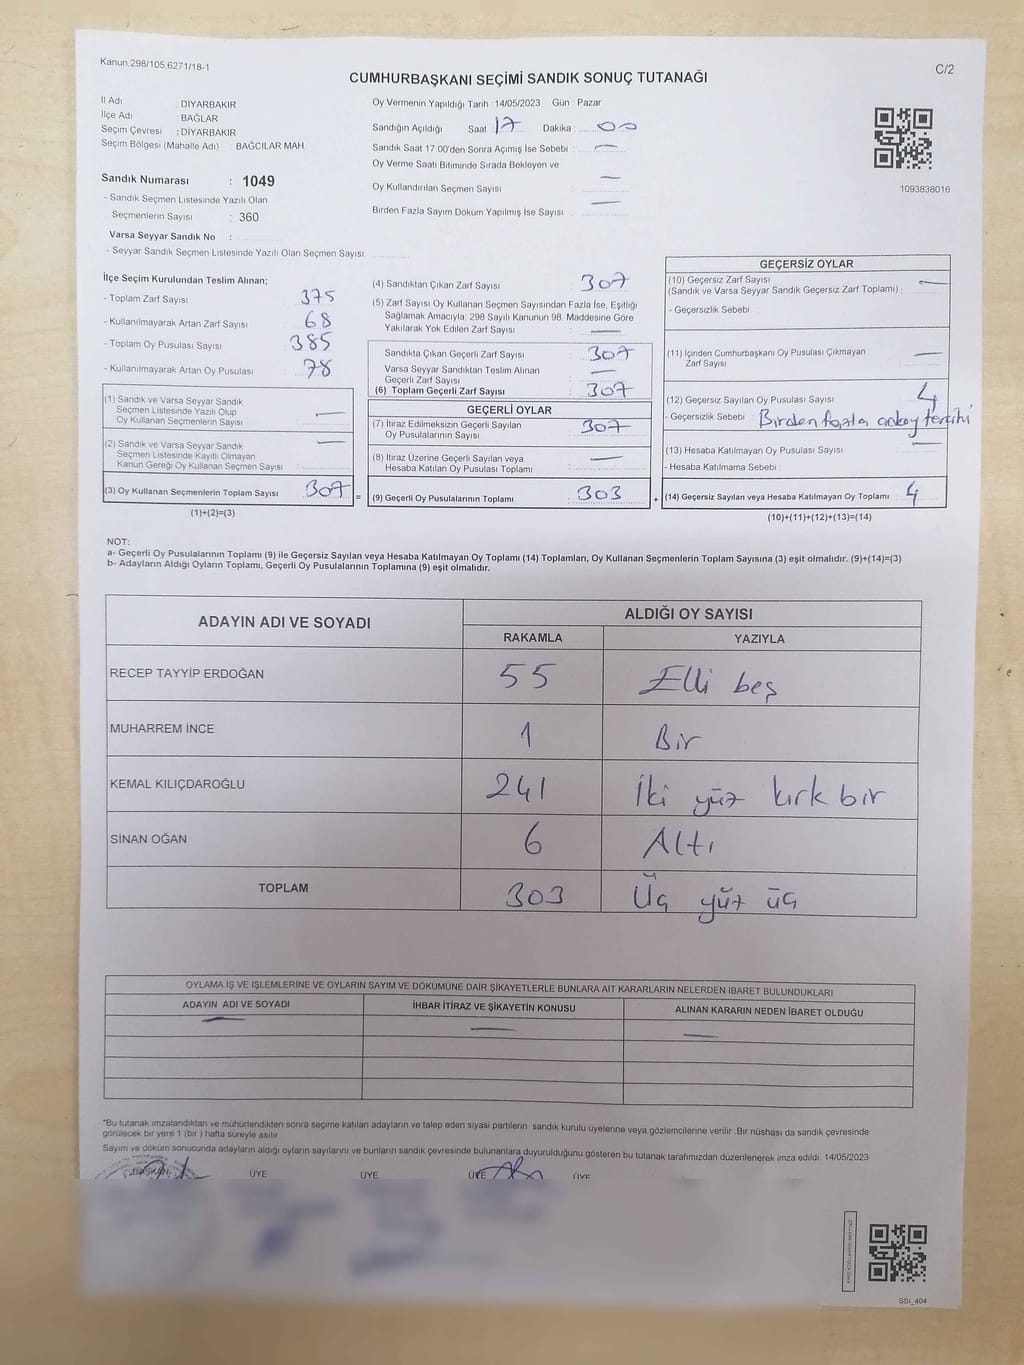 Kanun.298/105.6271/18-1
C/2
CUMHURBAŞKANI SEÇİMİ SANDIK SONUÇ TUTANAĞI
İl Adı : DİYARBAKIR
İlçe Adı : BAĞLAR
Seçim Çevresi : DİYARBAKIR
Seçim Bölgesi (Mahalle Adı) : BAĞCILAR MAH.
Oy Vermenin Yapıldığı Tarih :14/05/2023 Gün : Pazar
Sandığın Açıldığı Saat : 17 Dakika : 00
Sandık Saat 17:00'den Sonra Açımış İse Sebebi : —
Oy Verme Saati Bitiminde Sırada Bekleyen ve
Oy Kullandırılan Seçmen Sayısı : —
Birden Fazla Sayım Döküm Yapılmış İse Sayısı : —
1093838016
Sandık Numarası : 1049
- Sandık Seçmen Listesinde Yazılı Olan
Seçmenlerin Sayısı : 360
Varsa Seyyar Sandık No :
- Seyyar Sandık Seçmen Listesinde Yazılı Olan Seçmen Sayısı:
İlçe Seçim Kurulundan Teslim Alınan;
- Toplam Zarf Sayısı : 375
- Kullanılmayarak Artan Zarf Sayısı : 68
- Toplam Oy Pusulası Sayısı : 385
- Kullanılmayarak Artan Oy Pusulası : 78
(1) Sandık ve Varsa Seyyar Sandık
Seçmen Listesinde Yazılı Olup
Oy Kullanan Seçmenlerin Sayısı : —
(2) Sandık ve Varsa Seyyar Sandık
Seçmen Listesinde Kayıtlı Olmayan
Kanun Gereği Oy Kullanan Seçmen Sayısı : —
(3) Oy Kullanan Seçmenlerin Toplam Sayısı : 307
(1)+(2)=(3)
(4) Sandıktan Çıkan Zarf Sayısı : 307
(5) Zarf Sayısı Oy Kullanan Seçmen Sayısından Fazla İse, Eşitliği
Sağlamak Amacıyla; 298 Sayılı Kanunun 98. Maddesine Göre
Yakılarak Yok Edilen Zarf Sayısı : —
Sandıkta Çıkan Geçerli Zarf Sayısı : 307
Varsa Seyyar Sandıktan Teslim Alınan
Geçerli Zarf Sayısı : —
(6) Toplam Geçerli Zarf Sayısı : 307
GEÇERLİ OYLAR
(7) İtiraz Edilmeksizin Geçerli Sayılan
Oy Pusulalarının Sayısı : 307
(8) İtiraz Üzerine Geçerli Sayılan veya
Hesaba Katılan Oy Pusulası Toplamı : —
= (9) Geçerli Oy Pusulalarının Toplamı : 303 +
GEÇERSİZ OYLAR
(10) Geçersiz Zarf Sayısı
(Sandık ve Varsa Seyyar Sandık Geçersiz Zarf Toplamı) : —
- Geçersizlik Sebebi :
(11) İçinden Cumhurbaşkanı Oy Pusulası Çıkmayan
Zarf Sayısı : —
(12) Geçersiz Sayılan Oy Pusulası Sayısı : 4
- Geçersizlik Sebebi : Birden fazla aday tercihi
(13) Hesaba Katılmayan Oy Pusulası Sayısı : —
- Hesaba Katılmama Sebebi :
(14) Geçersiz Sayılan veya Hesaba Katılmayan Oy Toplamı : 4
(10)+(11)+(12)+(13)=(14)
NOT:
a- Geçerli Oy Pusulalarının Toplamı (9) ile Geçersiz Sayılan veya Hesaba Katılmayan Oy Toplamı (14) Toplamları, Oy Kullanan Seçmenlerin Toplam Sayısına (3) eşit olmalıdır. (9)+(14)=(3)
b- Adayların Aldığı Oyların Toplamı, Geçerli Oy Pusulalarının Toplamına (9) eşit olmalıdır.
ADAYIN ADI VE SOYADI
ALDIĞI OY SAYISI
RAKAMLA YAZIYLA
RECEP TAYYİP ERDOĞAN 55 Elli beş
MUHARREM İNCE 1 Bir
KEMAL KILIÇDAROĞLU 241 İki yüz kırk bir
SİNAN OĞAN 6 Altı
TOPLAM 303 Üç yüz üç
OYLAMA İŞ VE İŞLEMLERİNE VE OYLARIN SAYIM VE DÖKÜMÜNE DAİR ŞİKAYETLERLE BUNLARA AİT KARARLARIN NELERDEN İBARET BULUNDUKLARI
ADAYIN ADI VE SOYADI İHBAR İTİRAZ VE ŞİKAYETİN KONUSU ALINAN KARARIN NEDEN İBARET OLDUĞU
— — —
*Bu tutanak imzalandıktan ve mühürlendikten sonra seçime katılan adayların ve talep eden siyasi partilerin sandık kurulu üyelerine veya gözlemcilerine verilir. Bir nüshası da sandık çevresinde
görülecek bir yere 1 (bir ) hafta süreyle asılır.
Sayım ve döküm sonucunda adayların aldığı oyların sayılarını ve bunların sandık çevresinde bulunanlara duyurulduğunu gösteren bu tutanak tarafımızdan düzenlenerek imza edildi. 14/05/2023
BAŞKAN ÜYE ÜYE ÜYE ÜYE
SSI_404